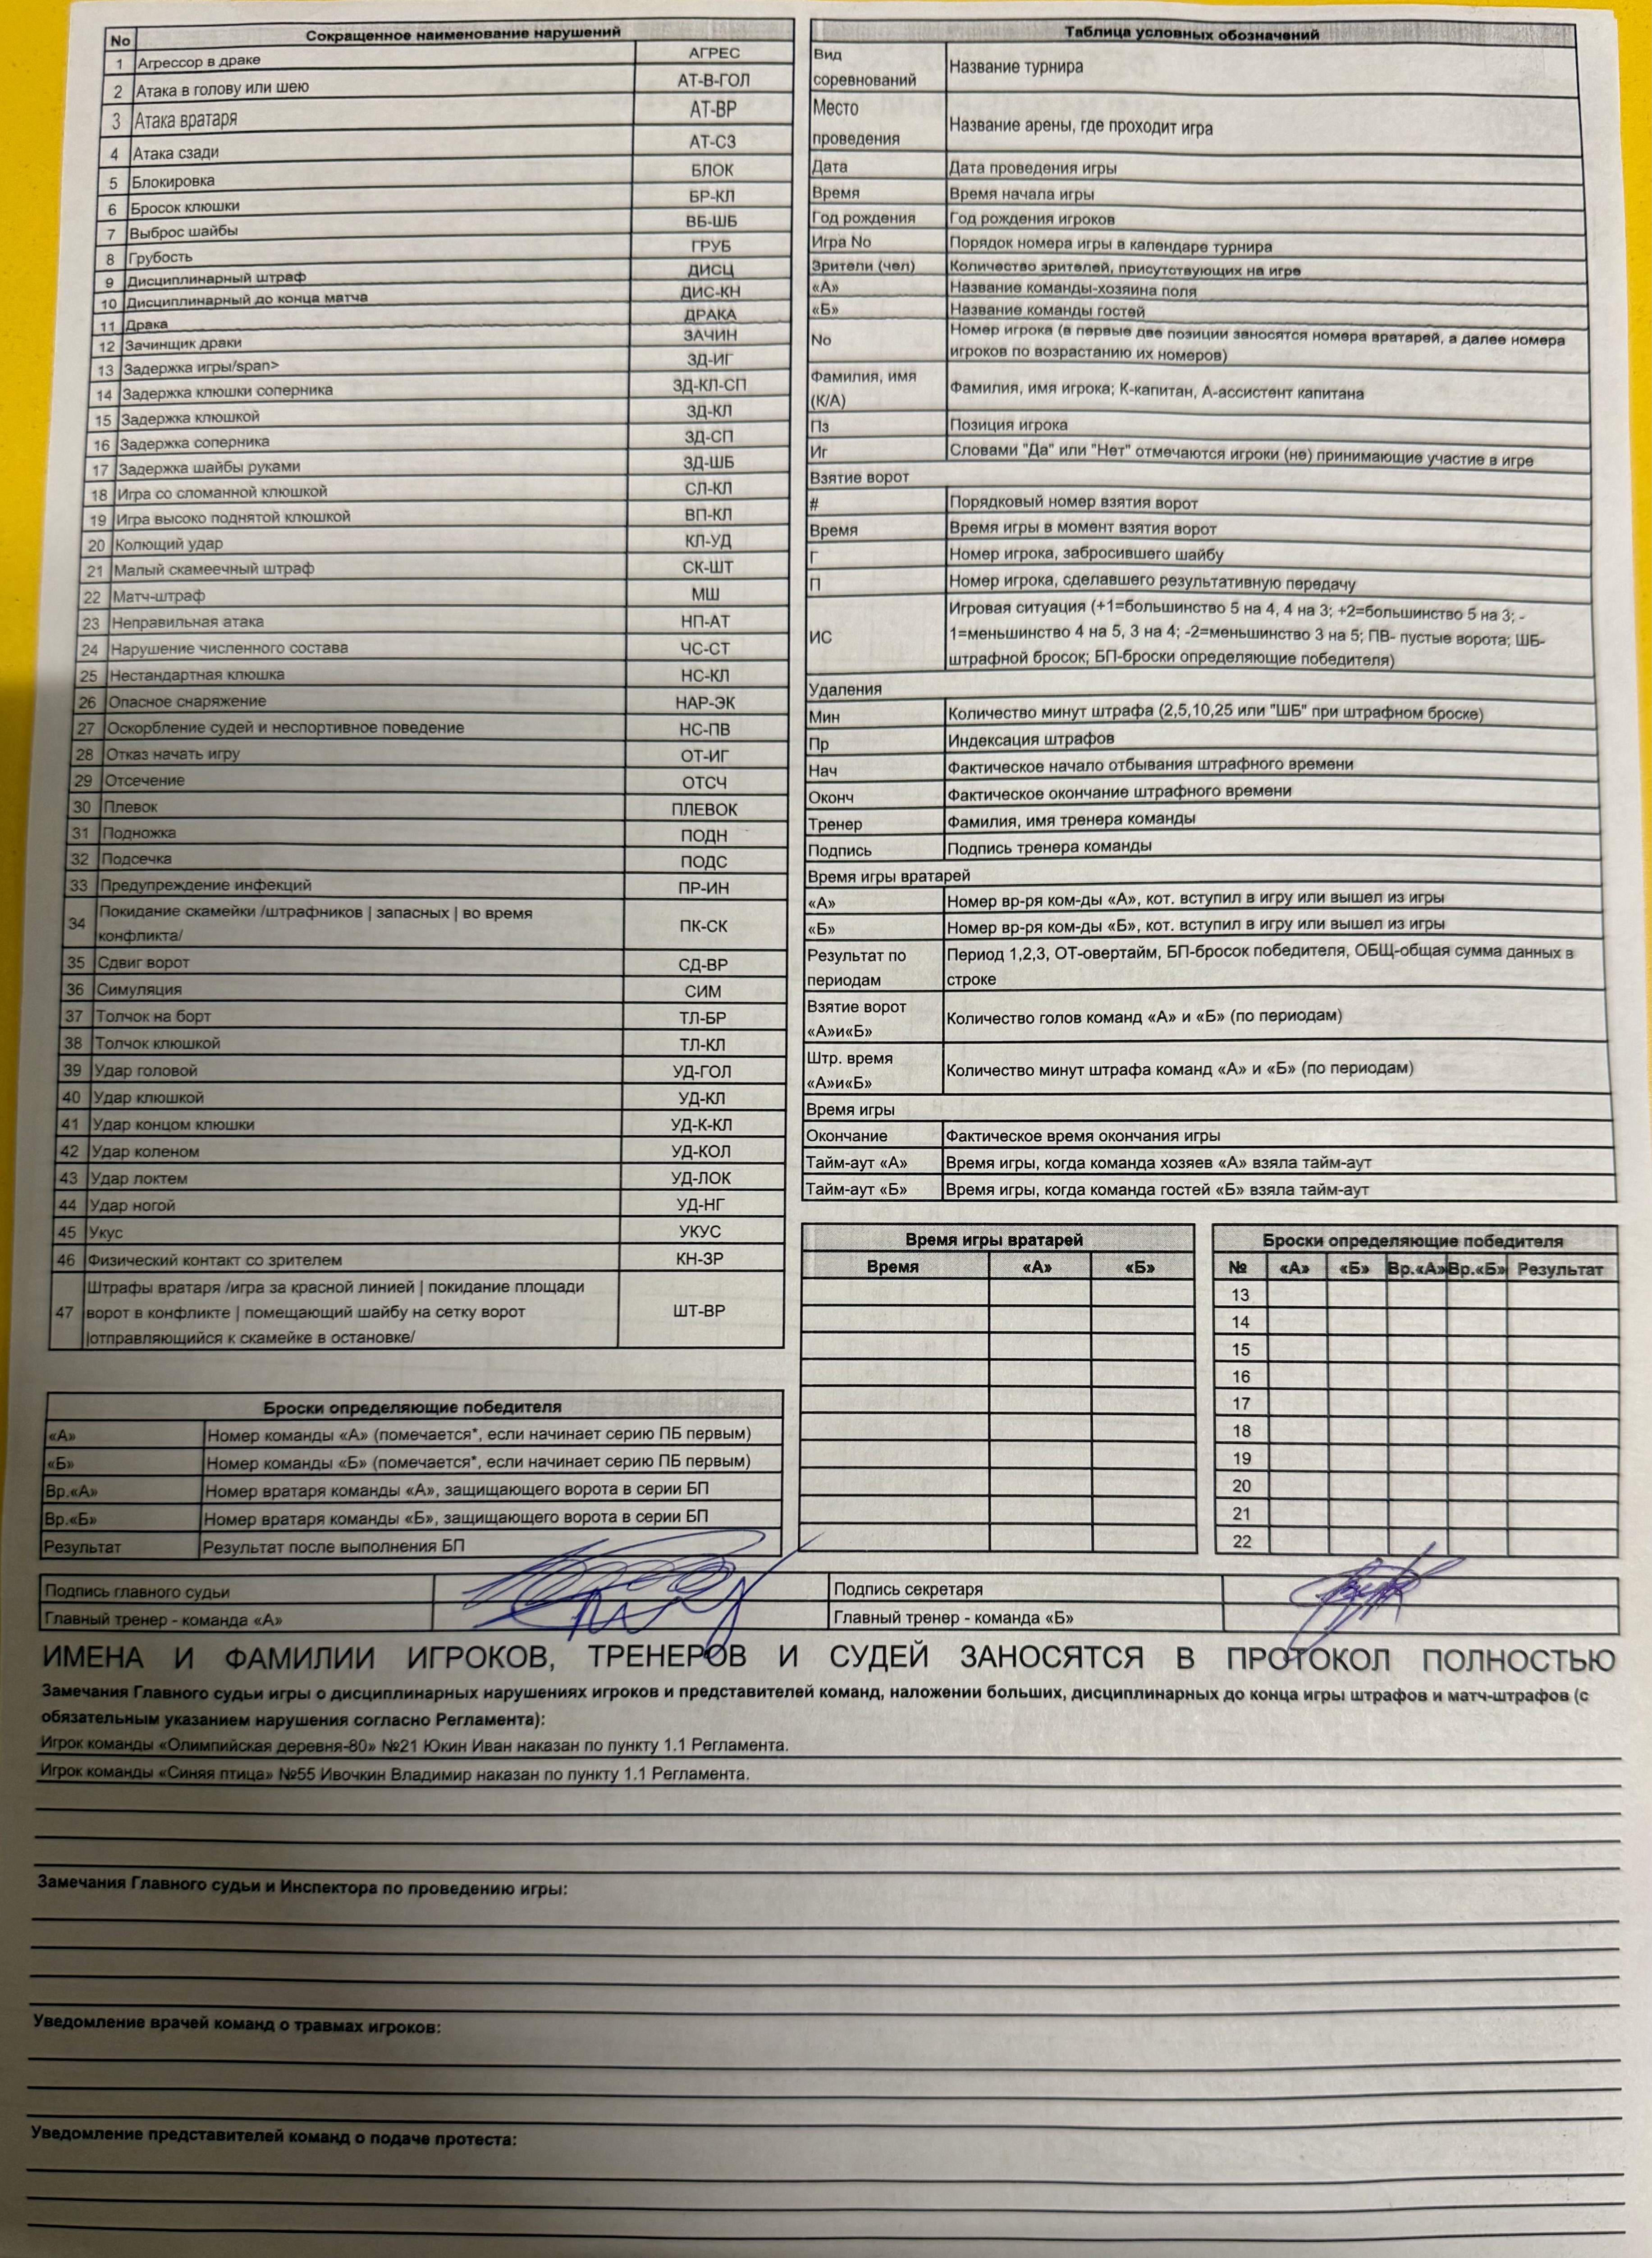 No Сокращенное наименование нарушений
1 Агрессор в драке АГРЕС
2 Атака в голову или шею АТ-В-ГОЛ
3 Атака вратаря АТ-ВР
4 Атака сзади АТ-СЗ
5 Блокировка БЛОК
6 Бросок клюшки БР-КЛ
7 Выброс шайбы ВБ-ШБ
8 Грубость ГРУБ
9 Дисциплинарный штраф ДИСЦ
10 Дисциплинарный до конца матча ДИС-КН
11 Драка ДРАКА
12 Зачинщик драки ЗАЧИН
13 Задержка игры/span> ЗД-ИГ
14 Задержка клюшки соперника ЗД-КЛ-СП
15 Задержка клюшкой ЗД-КЛ
16 Задержка соперника ЗД-СП
17 Задержка шайбы руками ЗД-ШБ
18 Игра со сломанной клюшкой СЛ-КЛ
19 Игра высоко поднятой клюшкой ВП-КЛ
20 Колющий удар КЛ-УД
21 Малый скамеечный штраф СК-ШТ
22 Матч-штраф МШ
23 Неправильная атака НП-АТ
24 Нарушение численного состава ЧС-СТ
25 Нестандартная клюшка НС-КЛ
26 Опасное снаряжение НАР-ЭК
27 Оскорбление судей и неспортивное поведение НС-ПВ
28 Отказ начать игру ОТ-ИГ
29 Отсечение ОТСЧ
30 Плевок ПЛЕВОК
31 Подножка ПОДН
32 Подсечка ПОДС
33 Предупреждение инфекций ПР-ИН
34 Покидание скамейки /штрафников | запасных | во время
конфликта/ ПК-СК
35 Сдвиг ворот СД-ВР
36 Симуляция СИМ
37 Толчок на борт ТЛ-БР
38 Толчок клюшкой ТЛ-КЛ
39 Удар головой УД-ГОЛ
40 Удар клюшкой УД-КЛ
41 Удар концом клюшки УД-К-КЛ
42 Удар коленом УД-КОЛ
43 Удар локтем УД-ЛОК
44 Удар ногой УД-НГ
45 Укус УКУС
46 Физический контакт со зрителем КН-ЗР
Штрафы вратаря /игра за красной линией | покидание площади
47 ворот в конфликте | помещающий шайбу на сетку ворот ШТ-ВР
|отправляющийся к скамейке в остановке/
Броски определяющие победителя
«А» Номер команды «А» (помечается*, если начинает серию ПБ первым)
«Б» Номер команды «Б» (помечается*, если начинает серию ПБ первым)
Вр.«А» Номер вратаря команды «А», защищающего ворота в серии БП
Вр.«Б» Номер вратаря команды «Б», защищающего ворота в серии БП
Результат Результат после выполнения БП
Таблица условных обозначений
Вид
соревнований Название турнира
Место
проведения Название арены, где проходит игра
Дата Дата проведения игры
Время Время начала игры
Год рождения Год рождения игроков
Игра No Порядок номера игры в календаре турнира
Зрители (чел) Количество зрителей, присутствующих на игре
«А» Название команды-хозяина поля
«Б» Название команды гостей
No Номер игрока (в первые две позиции заносятся номера вратарей, а далее номера
игроков по возрастанию их номеров)
Фамилия, имя
(К/А) Фамилия, имя игрока; К-капитан, А-ассистент капитана
Пз Позиция игрока
Иг Словами "Да" или "Нет" отмечаются игроки (не) принимающие участие в игре
Взятие ворот
# Порядковый номер взятия ворот
Время Время игры в момент взятия ворот
Г Номер игрока, забросившего шайбу
П Номер игрока, сделавшего результативную передачу
Игровая ситуация (+1=большинство 5 на 4, 4 на 3; +2=большинство 5 на 3; -
ИС 1=меньшинство 4 на 5, 3 на 4; -2=меньшинство 3 на 5; ПВ- пустые ворота; ШБ-
штрафной бросок; БП-броски определяющие победителя)
Удаления
Мин Количество минут штрафа (2,5,10,25 или "ШБ" при штрафном броске)
Пр Индексация штрафов
Нач Фактическое начало отбывания штрафного времени
Оконч Фактическое окончание штрафного времени
Тренер Фамилия, имя тренера команды
Подпись Подпись тренера команды
Время игры вратарей
«А» Номер вр-ря ком-ды «А», кот. вступил в игру или вышел из игры
«Б» Номер вр-ря ком-ды «Б», кот. вступил в игру или вышел из игры
Результат по Период 1,2,3, ОТ-овертайм, БП-бросок победителя, ОБЩ-общая сумма данных в
периодам строке
Взятие ворот
«А»и«Б» Количество голов команд «А» и «Б» (по периодам)
Штр. время
«А»и«Б» Количество минут штрафа команд «А» и «Б» (по периодам)
Время игры
Окончание Фактическое время окончания игры
Тайм-аут «А» Время игры, когда команда хозяев «А» взяла тайм-аут
Тайм-аут «Б» Время игры, когда команда гостей «Б» взяла тайм-аут
Время игры вратарей
Время «А» «Б»
Броски определяющие победителя
№ «А» «Б» Вр.«А» Вр.«Б» Результат
13
14
15
16
17
18
19
20
21
22
Подпись главного судьи Подпись секретаря
Главный тренер - команда «А» Главный тренер - команда «Б»
ИМЕНА И ФАМИЛИИ ИГРОКОВ, ТРЕНЕРОВ И СУДЕЙ ЗАНОСЯТСЯ В ПРОТОКОЛ ПОЛНОСТЬЮ
Замечания Главного судьи игры о дисциплинарных нарушениях игроков и представителей команд, наложении больших, дисциплинарных до конца игры штрафов и матч-штрафов (с
обязательным указанием нарушения согласно Регламента):
Игрок команды «Олимпийская деревня-80» №21 Юкин Иван наказан по пункту 1.1 Регламента.
Игрок команды «Синяя птица» №55 Ивочкин Владимир наказан по пункту 1.1 Регламента.
Замечания Главного судьи и Инспектора по проведению игры:
Уведомление врачей команд о травмах игроков:
Уведомление представителей команд о подаче протеста: